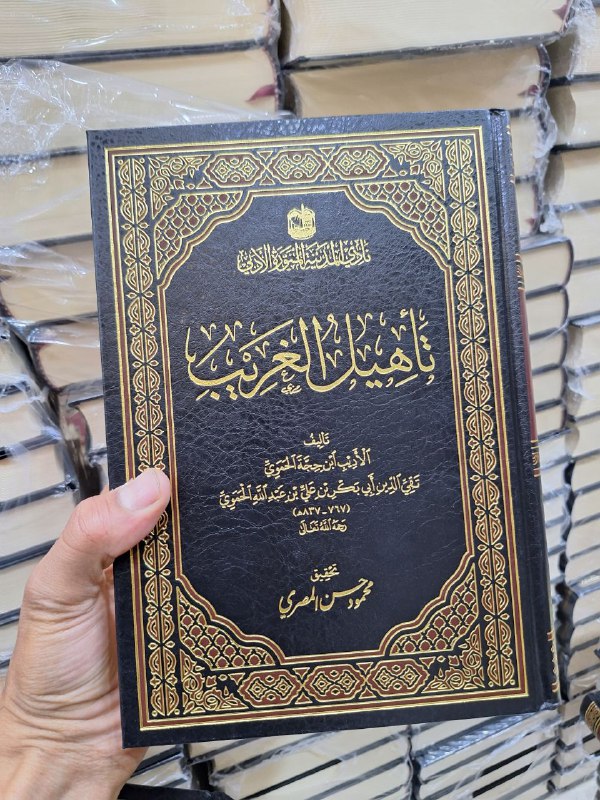 نادي المدينة المنورة الأدبي
تأهيل الغريب
تأليف
الأديب ابن حجة الحموي
تقي الدين أبي بكر بن علي بن عبد الله الحموي
(٧٦٧ - ٨٣٧هـ)
رحمه الله تعالى
تحقيق
محمود حسن المصري